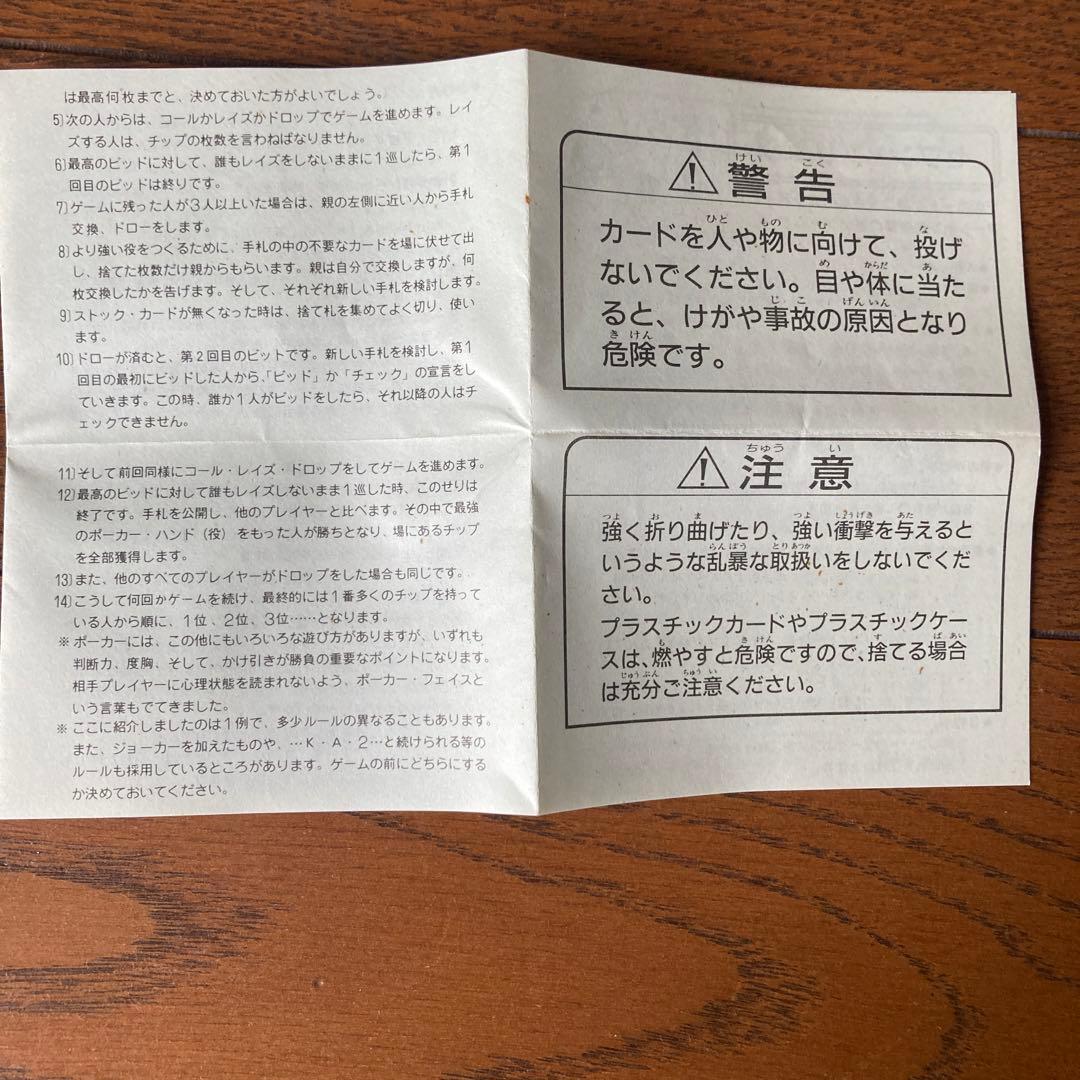 は最高何枚までと、決めておいた方がよいでしょう。
5)次の人からは、コールかレイズかドロップでゲームを進めます。レイ
ズする人は、チップの枚数を言わねばなりません。
6)最高のビッドに対して、誰もレイズをしないままに1巡したら、第1
回目のビッドは終りです。
7)ゲームに残った人が3人以上いた場合は、親の左側に近い人から手札
交換、ドローをします。
8)より強い役をつくるために、手札の中の不要なカードを場に伏せて出
し、捨てた枚数だけ親からもらいます。親は自分で交換しますが、何
枚交換したかを告げます。そして、それぞれ新しい手札を検討します。
9)ストック・カードが無くなった時は、捨て札を集めてよく切り、使い
ます。
10)ドローが済むと、第2回目のビットです。新しい手札を検討し、第1
回目の最初にビッドした人から、「ビッド」か「チェック」の宣言をし
ていきます。この時、誰か1人がビッドをしたら、それ以降の人はチ
ェックできません。
11)そして前回同様にコール・レイズ・ドロップをしてゲームを進めます。
12)最高のビッドに対して誰もレイズしないまま1巡した時、このせりは
終了です。手札を公開し、他のプレイヤーと比べます。その中で最強
のポーカー・ハンド(役)をもった人が勝ちとなり、場にあるチップ
を全部獲得します。
13)また、他のすべてのプレイヤーがドロップをした場合も同じです。
14)こうして何回かゲームを続け、最終的には1番多くのチップを持って
いる人から順に、1位、2位、3位……となります。
※ポーカーには、この他にもいろいろな遊び方がありますが、いずれも
判断力、度胸、そして、かけ引きが勝負の重要なポイントになります。
相手プレイヤーに心理状態を読まれないよう、ポーカー・フェイスと
いう言葉もでてきました。
※ここに紹介しましたのは1例で、多少ルールの異なることもあります。
また、ジョーカーを加えたものや、…K・A・2…と続けられる等の
ルールも採用しているところがあります。ゲームの前にどちらにする
か決めておいてください。
けい こく
⚠警告
ひと もの む な
カードを人や物に向けて、投げ
め からだ あ
ないでください。目や体に当た
じ こ げんいん
ると、けがや事故の原因となり
き けん
危険です。
ちゅう い
⚠注意
つよ お ま つよ しょうげき あた
強く折り曲げたり、強い衝撃を与えると
らんぼう とりあつか
いうような乱暴な取扱いをしないでくだ
さい。
プラスチックカードやプラスチックケー
も き けん す ば あい
スは、燃やすと危険ですので、捨てる場合
じゅうぶん ちゅう い
は充分ご注意ください。